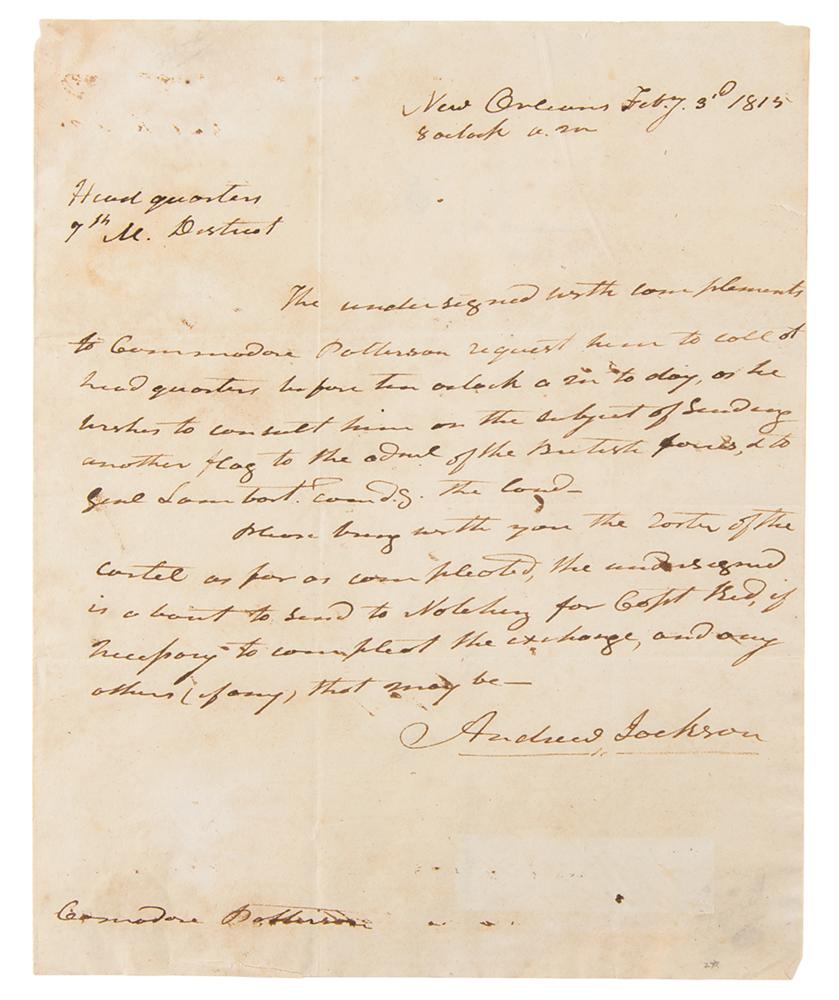 New Orleans Feby. 3rd 1815
8 oclock a.m
Head quarters
7th M. District
The undersigned with complements
to Commodore Patterson request him to call at
head quarters before ten oclock a m to day, as he
wishes to consult him on the subject of sending
another flag to the adml of the British forces, & to
Genl Lambert. Comdg. the land—
please bring with you the roster of the
cartel as far as compleated, the undersigned
is about to send to Natchez for Capt if
necessary to compleat the exchange, and any
others (if any) that may be—
Andrew Jackson
Commodore Patterson